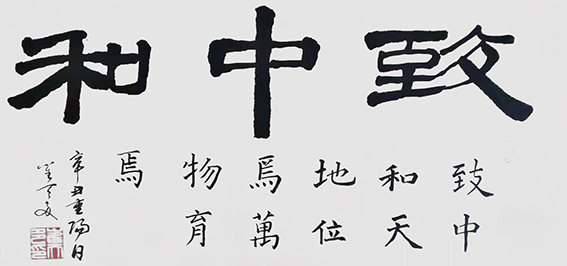 致中和
致中
和天
地位
焉萬
物育
焉
辛丑重陽日